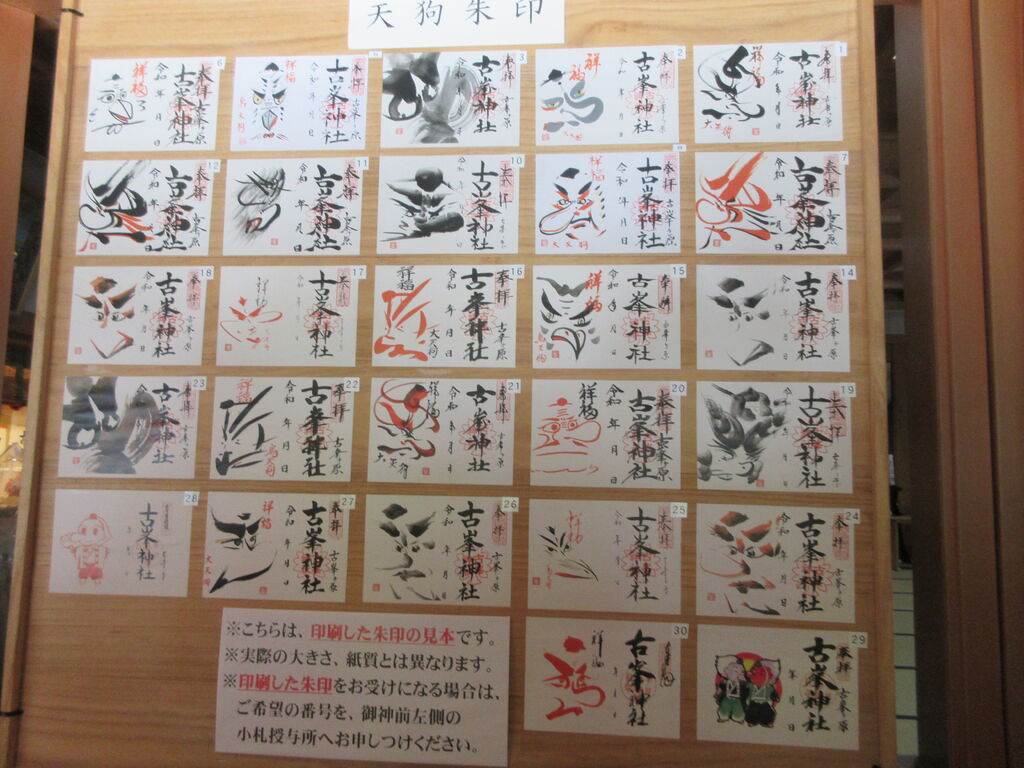 天狗朱印
1
奉拝
古峯神社
令和 年 月 日
祥福
大天狗
2
奉拝
古峯神社
令和 年 月 日
祥福
3
奉拝
古峯神社
令和 年 月 日
奉拝
古峯神社
令和 年 月 日
6
奉拝
古峯ヶ原
古峯神社
令和 年 月 日
祥福
7
奉拝
古峯ヶ原
古峯神社
令和 年 月 日
祥福
古峯神社
令和 年 月 日
10
古峯神社
11
奉拝
古峯ヶ原
古峯神社
令和 年 月 日
12
奉拝
古峯ヶ原
古峯神社
令和 年 月 日
14
奉拝
古峯神社
令和 年 月 日
15
奉拝
古峯神社
令和 年 月 日
祥福
16
奉拝
古峯ヶ原
古峯神社
令和 年 月 日
祥福
大天狗
17
古峯神社
祥福
18
奉拝
古峯神社
令和 年 月 日
19
古峯神社
20
奉拝
古峯ヶ原
古峯神社
令和 年 月 日
祥福
21
奉拝
古峯神社
令和 年 月 日
祥福
大天狗
22
奉拝
古峯ヶ原
古峯神社
令和 年 月 日
祥福
23
奉拝
古峯神社
24
奉拝
古峯ヶ原
古峯神社
令和 年 月 日
25
古峯神社
26
奉拝
古峯ヶ原
古峯神社
令和 年 月 日
27
奉拝
古峯ヶ原
古峯神社
令和 年 月 日
祥福
28
古峯神社
29
奉拝
古峯ヶ原
古峯神社
年 月 日
30
古峯神社
祥福
※こちらは、印刷した朱印の見本です。
※実際の大きさ、紙質とは異なります。
※印刷した朱印をお受けになる場合は、
ご希望の番号を、御神前左側の
小札授与所へお申しつけください。